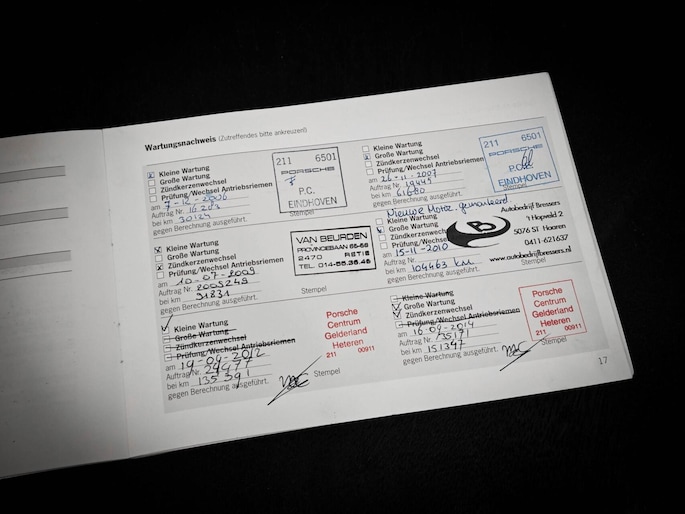 Wartungsnachweis (Zutreffendes bitte ankreuzen)
Kleine Wartung
Große Wartung
Zündkerzenwechsel
Prüfung/Wechsel Antriebsriemen
am 7-12-2006
Auftrag Nr. 16263
bei km 30124
gegen Berechnung ausgeführt.
211 6501
PORSCHE
P.C.
EINDHOVEN
Stempel
Kleine Wartung
Große Wartung
Zündkerzenwechsel
Prüfung/Wechsel Antriebsriemen
am 26-11-2007
Auftrag Nr. 19449
bei km 61680
gegen Berechnung ausgeführt.
211 6501
PORSCHE
P.C.
EINDHOVEN
Stempel
Kleine Wartung
Große Wartung
Zündkerzenwechsel
Prüfung/Wechsel Antriebsriemen
am 10-07-2009
Auftrag Nr. 2009249
bei km 91831
gegen Berechnung ausgeführt.
VAN BEURDEN
PROVINCIEBAAN 66-68
2470 RETIE
Stempel
Nieuwe Motor gemonteerd
Kleine Wartung
Große Wartung
Zündkerzenwechsel
Prüfung/Wechsel
am 15-11-2010
Auftrag Nr.
bei km 104463 km
gegen Berechnung ausgeführt.
B
Autobedrijf Bressers
't Hopveld 2
5076 ST Haaren
0411-621637
www.autobedrijfbressers.nl
Stempel
Kleine Wartung
Große Wartung
Zündkerzenwechsel
Prüfung/Wechsel Antriebsriemen
am 19-04-2012
Auftrag Nr. 29477
bei km 135391
gegen Berechnung ausgeführt.
Porsche
Centrum
Gelderland
Heteren
211 00911
Stempel
Kleine Wartung
Große Wartung
Zündkerzenwechsel
Prüfung/Wechsel Antriebsriemen
am 16-09-2014
Auftrag Nr. 35171
bei km 151347
gegen Berechnung ausgeführt.
Porsche
Centrum
Gelderland
Heteren
211 00911
Stempel
17